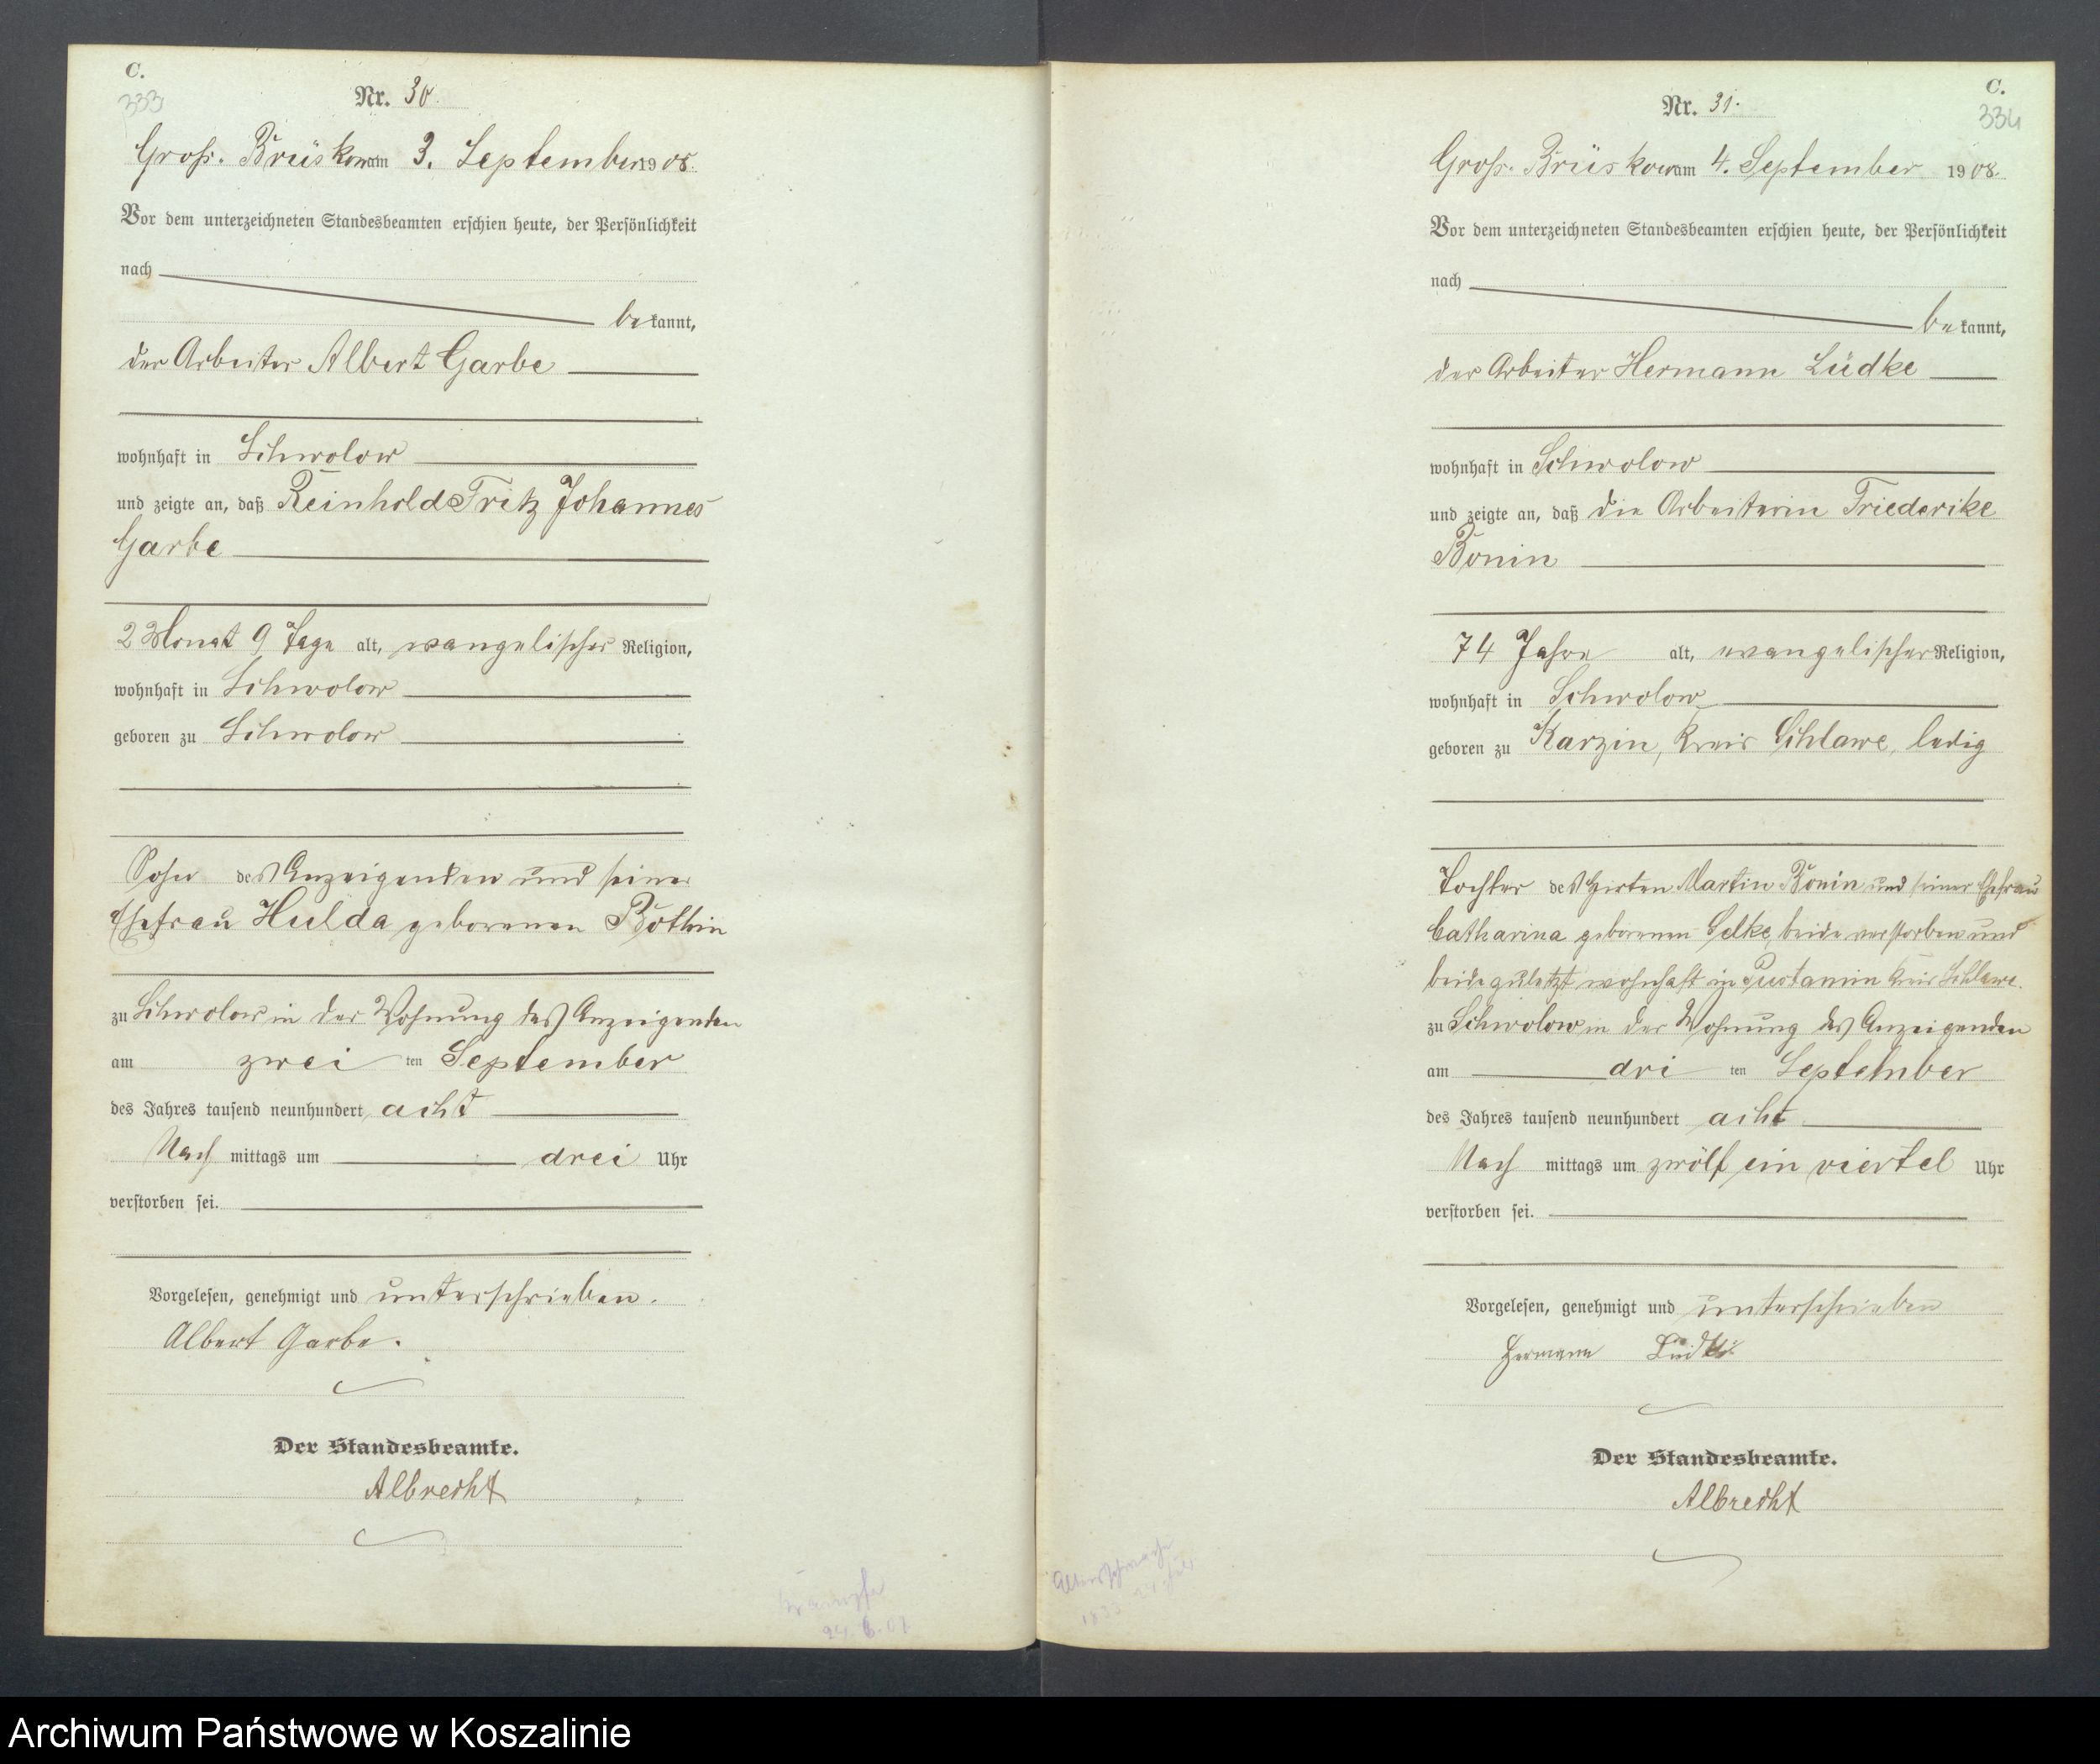 C.
333
Nr. 30.
Groß. Brüskow am 3. September 1908.
Vor dem unterzeichneten Standesbeamten erschien heute, der Persönlichkeit
nach
bekannt,
der Arbeiter Albert Garbe
wohnhaft in Schwolow
und zeigte an, daß Reinhold Fritz Johannes
Garbe
2 Monat 9 Tage alt, evangelischer Religion,
wohnhaft in Schwolow
geboren zu Schwolow
Sohn des Anzeigenden und seiner
Ehefrau Hulda geborenen Böthin
zu Schwolow in der Wohnung des Anzeigenden
am zwei ten September
des Jahres tausend neunhundert acht
Nach mittags um drei Uhr
verstorben sei.
Vorgelesen, genehmigt und unterschrieben.
Albert Garbe.
Der Standesbeamte.
Albrecht
Krämpfe
C.
334
Nr. 31.
Groß. Brüskow am 4. September 1908.
Vor dem unterzeichneten Standesbeamten erschien heute, der Persönlichkeit
nach
bekannt,
der Arbeiter Hermann Lüdke
wohnhaft in Schwolow
und zeigte an, daß die Arbeiterin Friederike
Bonin
74 Jahre alt, evangelischer Religion,
wohnhaft in Schwolow
geboren zu Karzin, Kreis Schlawe, ledig
Tochter des Hirten Martin Bonin und seiner Ehefrau
Catharina geborenen Selke, beide verstorben und
beide zuletzt wohnhaft in Pustamin Kreis Schlawe.
zu Schwolow in der Wohnung des Anzeigenden
am dri ten September
des Jahres tausend neunhundert acht
Nach mittags um zwölf ein viertel Uhr
verstorben sei.
Vorgelesen, genehmigt und unterschrieben
Hermann Lüdke
Der Standesbeamte.
Albrecht
Altersschwäche
Archiwum Państwowe w Koszalinie